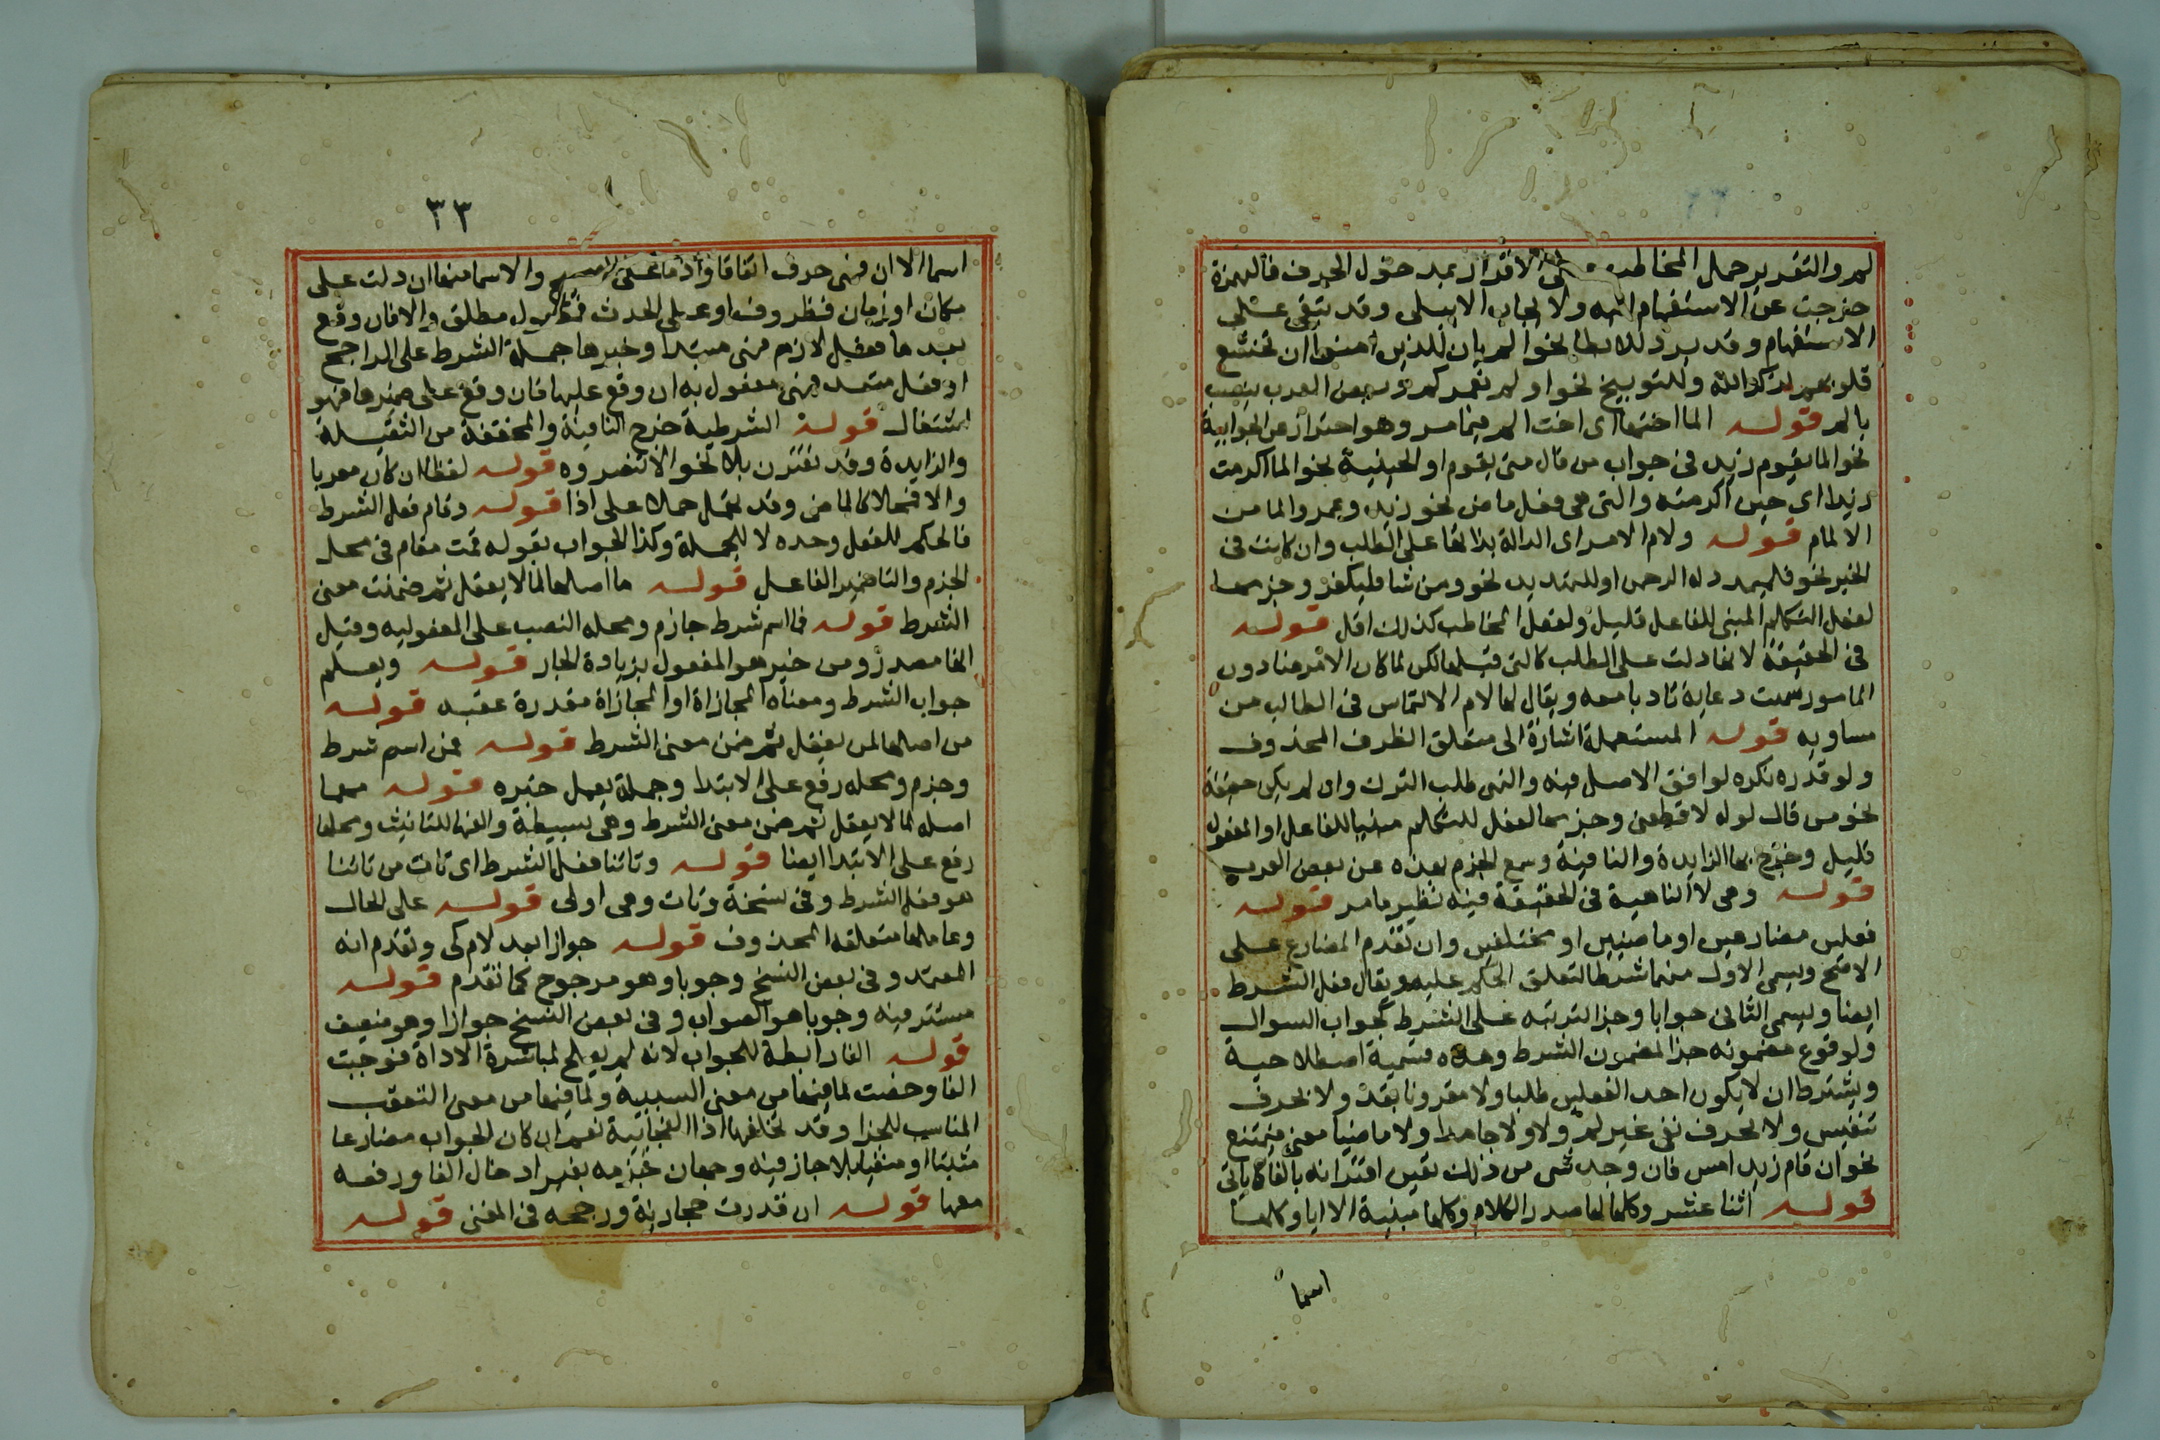 لم والتقرير حمل المخاطب على الاقرار بعد دخول الحرف فالهمزة
خرجت عن الاستفهام اليه ولا يجاب الا ببلى وقد تبقى على
الاستفهام وقد يرد للابطا نحو الم يان للذين امنوا ان تخشع
قلوبهم لذكر الله وللتوبيخ نحو اولم نعمركم وبعض العرب ينصب
بالم قوله الما اختها اى اخت الم فيما مر وهو احتراز عن الجوابية
نحو الما يقوم زيد فى جواب من قال متى يقوم او الحينية نحو الما اكرمت
زيدا اى حين اكرمته والتى هى فعل ماض نحو زيد وعمرو الما من
الالمام قوله ولام الامر اى الدالة بذاتها على الطلب وان كانت فى
الخبر نحو فليمدد له الرحمن او للتهديد نحو ومن شا فليكفر وجزمها
لفعل المتكلم المبنى للفاعل قليل ولفعل المخاطب كذلك اقل قوله
فى الحقيقة لانها دلت على الطلب كالتى قبلها لكن لما كان الامر منا دون
المامور سميت دعاية تادبا معه ويقال لها لام الالتماس فى الطالب من
مساويه قوله المستعملة اشارة الى متعلق الظرف المحذوف
ولو قدره نكره لوافق الاصل فيه والنهى طلب الترك وان لم يكن حقيقة
نحو من قال لوله لا قطعنى وجزمها لفعل المتكلم مبنيا للفاعل او المفعول
قليل وخرج بها الزايدة والنافية وسمع الجزم بهذه عن بعض العرب
قوله وهى لا الناهية فى الحقيقة فيه نظير ما مر قوله
فعلين مضارعين او ماضيين او مختلفين وان تقدم المضارع على
الاصح ويسمى الاول منهما شرطا لتعلق الحكم عليه ويقال فعل الشرط
ايضا ويسمى الثانى جوابا وجزا لترتبه على الشرط كجواب السوال
ولوقوع مضمونه جزا لمضمون الشرط وهذه تسمية اصطلاحية
ويشترط ان لا يكون احد الفعلين طلبا ولا مقرونا بقد ولا بحرف
تنفيس ولا بحرف نفى غير لم ولا ولا جامدا ولا ماضيا معنى فيمتنع
نحو ان قام زيد امس فان وجد شى من ذلك تعين اقترانه بالفا كما ياتى
قوله اثنا عشر وكلها لها صدر الكلام وكلها مبنية الا ايا وكلها
اسما
٣٣
اسما الا ان فهى حرف اتفاقا واذ ما على الاصح والاسما منها ان دلت على
مكان او زمان فظروف او على الحدث فمفعول مطلق والا فان وقع
بعدها فعل لازم فهى مبتدا وخبرها جملة الشرط على الراجح
او فعل متعد فهى مفعول به ان وقع عليها فان وقع على ضميرها فهو
اشتغال قوله الشرطية خرج النافية والمخففة من الثقيلة
والزايدة وقد تقترن بلا نحو الا تنصروه قوله لفظا ان كان معربا
والا فمحلا كالماضى وقد تهمل حملا على اذا قوله وقام فعل الشرط
فالحكم للفعل وحده لا للجملة وكذا الجواب بقوله قمت مقام فى محل
الجزم والتا ضمير الفاعل قوله ما اصلها لما لا يعقل ثم ضمنت معنى
الشرط قوله فما اسم شرط جازم ومحله النصب على المفعوليه وقيل
انها مصدر ومن خير هو المفعول بزيادة الجار قوله ويعلم
جواب الشرط ومعناه المجازاة او المجازاة مقدرة عقبه قوله
من اصلها لمن يعقل ثم ضمن معنى الشرط قوله فمن اسم شرط
وجزم ومحله رفع على الابتدا وجملة يعمل خبره قوله مهما
اصله لما لا يعقل ثم ضمن معنى الشرط وهى بسيطة والفها للتانيث ومحلها
رفع على الابتدا ايضا قوله وتاتنا فعل الشرط اى تات من تاتنا
هو فعل الشرط وفى نسخة وتات وهى اولى قوله على الحال
وعاملها متعلقه المحذوف قوله جوازا بعد لام كى وتقدم انه
المعتمد وفى بعض النسخ وجوبا وهو مرجوح كما تقدم قوله
مستتر فيه وجوبا هو الصواب وفى بعض النسخ جوازا وهو ضعيف
قوله الفا رابطة للجواب لانه لم يصلح لمباشرة الاداة فوجبت
الفا وخصت لما فيها من معنى السببية ولما فيها من معنى التعقب
المناسب للجزا وقد تخلفها اذا الفجائية نعم ان كان الجواب مضارعا
مثبتا او منفيا بلا جاز فيه وجهان جزمه بغير ادخال الفا ورفعه
معها قوله ان قدرت حجازية ورجحه فى المغنى قوله